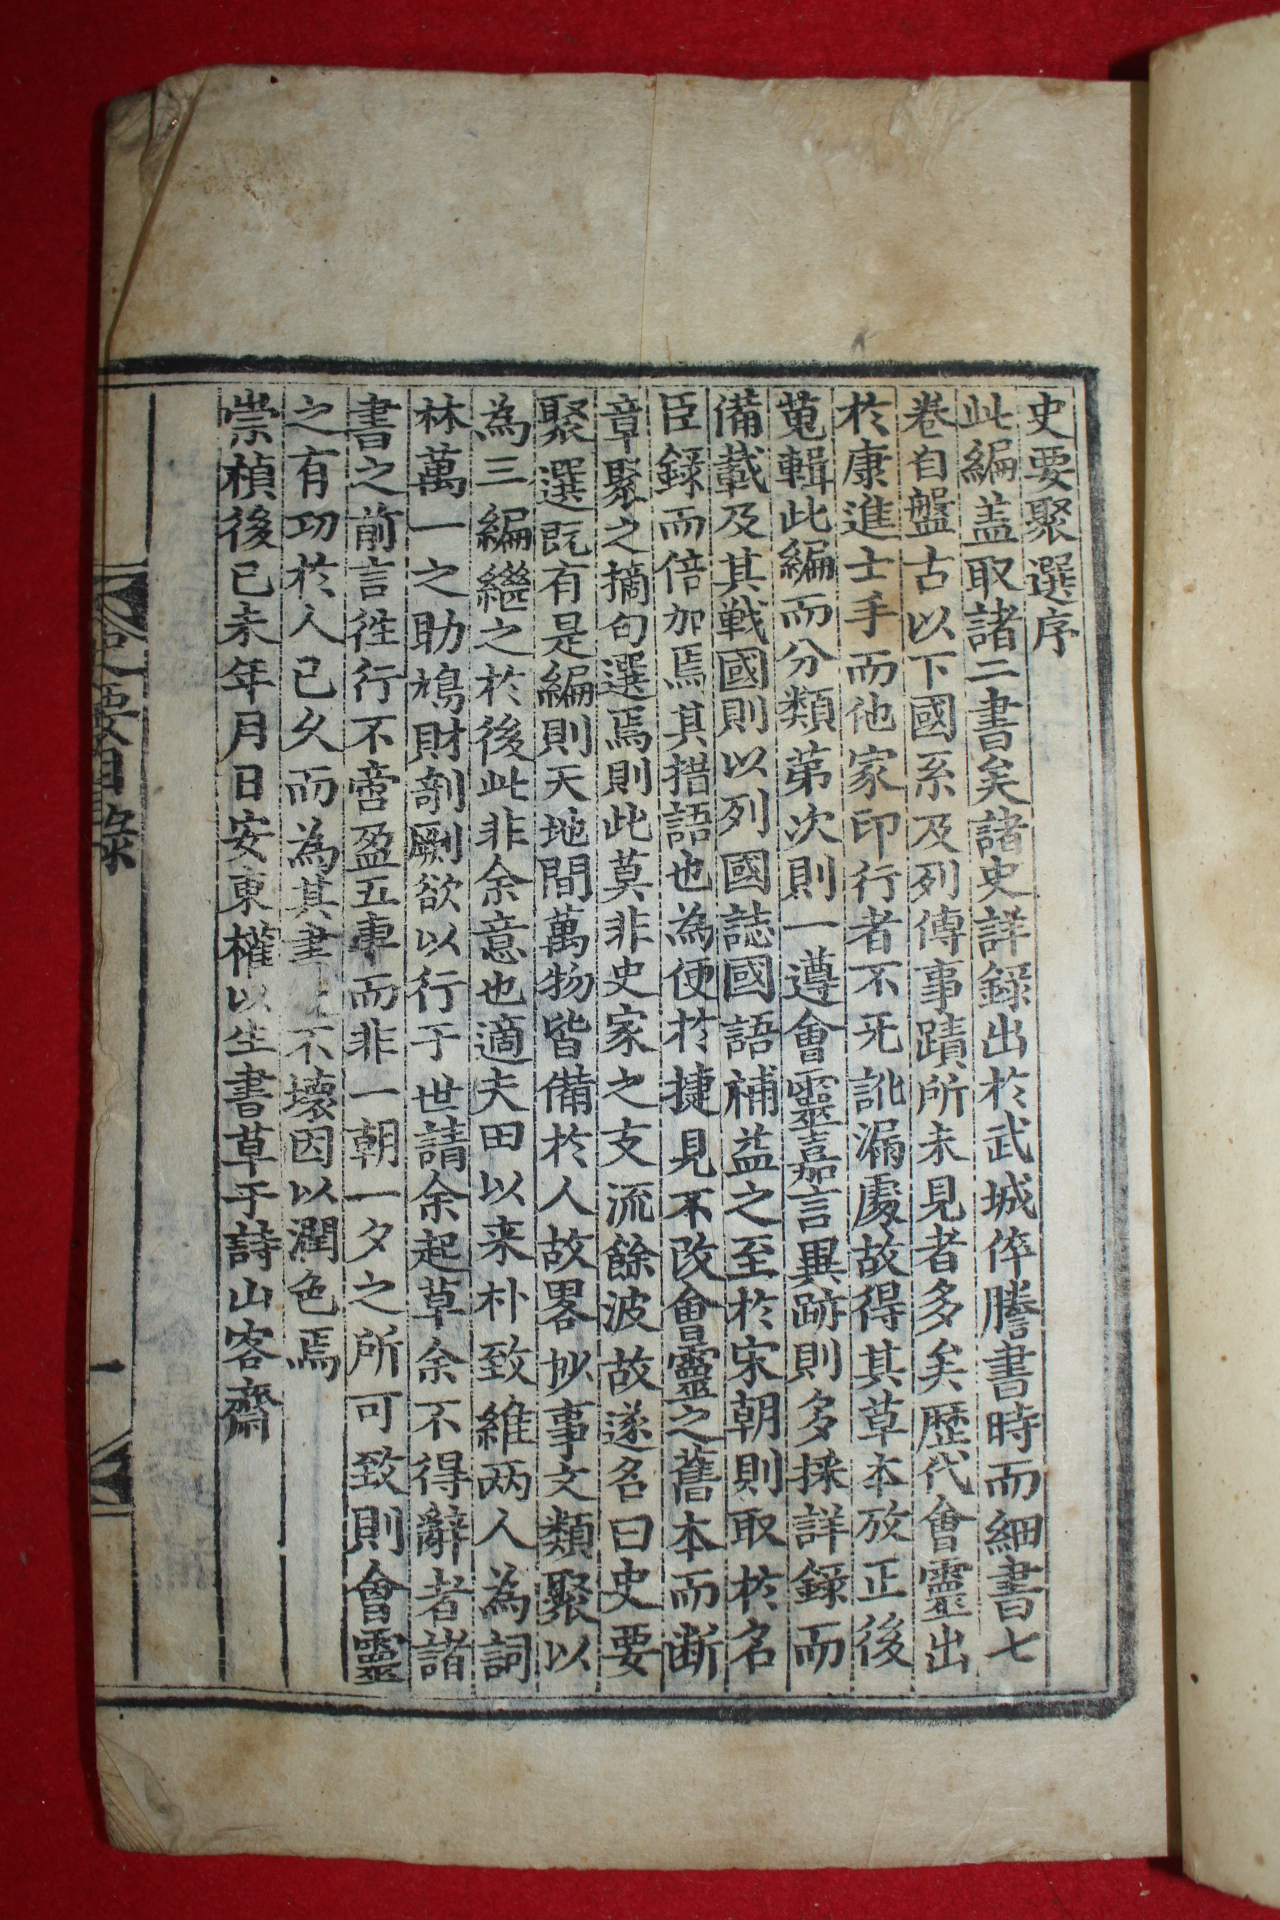 史要聚選序
此編盖取諸二書矣諸史詳錄出於武城倅謄書時而細書七
卷自盤古以下國系及列傳事蹟所未見者多矣歷代會靈出
於康進士手而他家印行者不无訛漏處故得其草本攷正後
蒐輯此編而分類第次則一遵會靈嘉言異跡則多採詳錄而
備載及其戰國則以列國誌國語補益之至於宋朝則取於名
臣錄而倍加焉其措語也為便於捷見不改會靈之舊本而斷
章聚之摘句選焉則此莫非史家之支流餘波故遂名曰史要
聚選旣有是編則天地間萬物皆備於人故畧抄事文類聚以
為三編繼之於後此非余意也適夫田以来朴致維两人為詞
林萬一之助鳩財剞劂欲以行于世請余起草余不得辭者諸
書之前言徃行不啻盈五車而非一朝一夕之所可致則會靈
之有功於人已久而為其書不壞因以潤色焉
崇楨後己未年月日安東權以生書草于詩山客齋
史要目錄
一